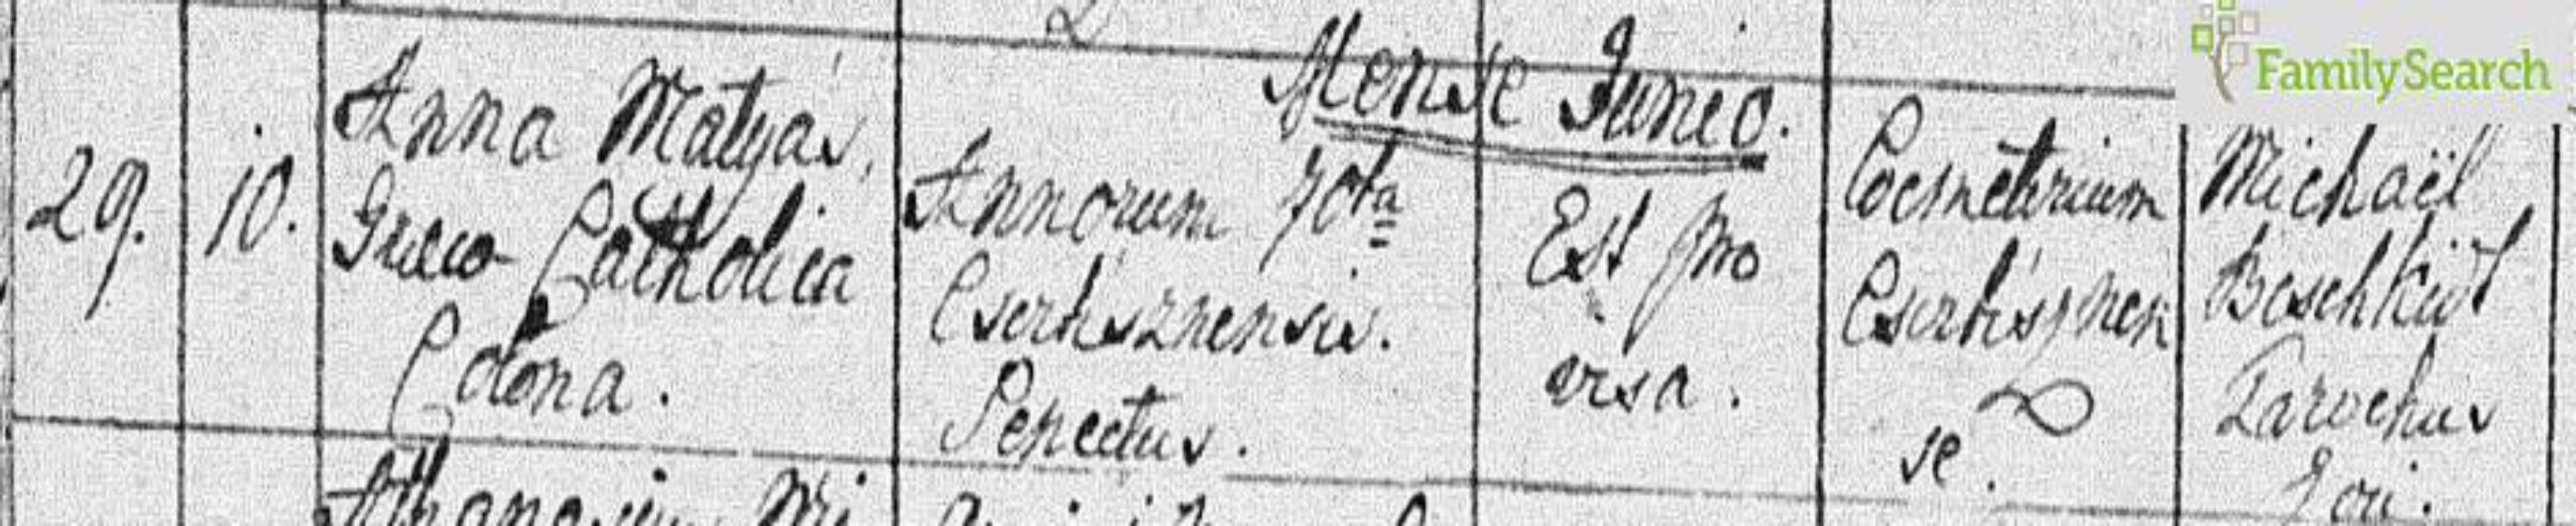 Mense Junio.
29.
10.
Anna Matyás,
Greco Catholica
Colona.
Annorum 70ta
Cserhisznensis.
Senectus.
Est pro
visa.
Coemeterium
Cserhisznen
se.
Michaël
Parochus
Loci.
FamilySearch